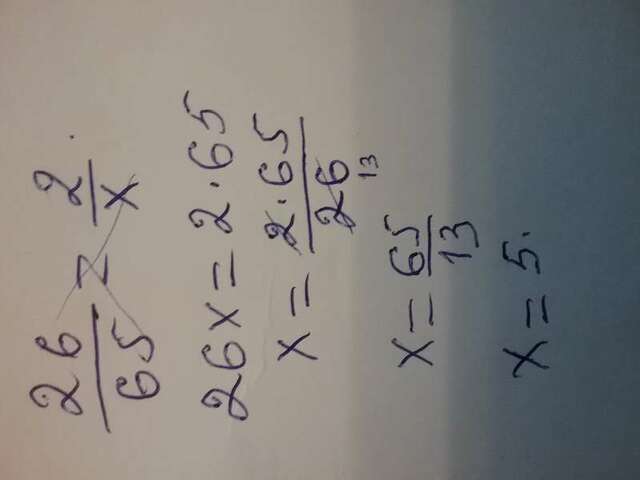 26/65 = 2/x.
26x = 2·65
x = 2·65/26
13
x = 65/13
x = 5.